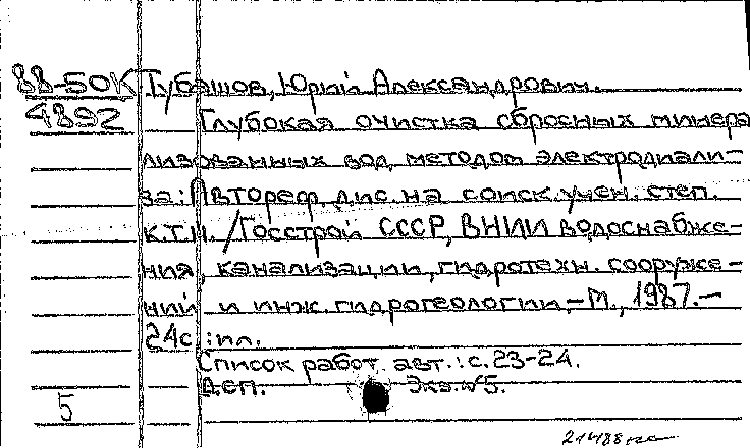 88-50К Губашов, Юрий Александрович.
4892 Глубокая очистка сбросных минера
лизованных вод методом электродиали-
за: Автореф. дис. на соиск. учен. степ.
к.т.н. / Госстрой СССР, ВНИИ водоснабже-
ния, канализации, гидротехн. сооруже-
ний и инж. гидрогеологии, - М., 1987. -
24с : ил.
Список работ авт.: с. 23-24.
Деп. Экз. №5.
5